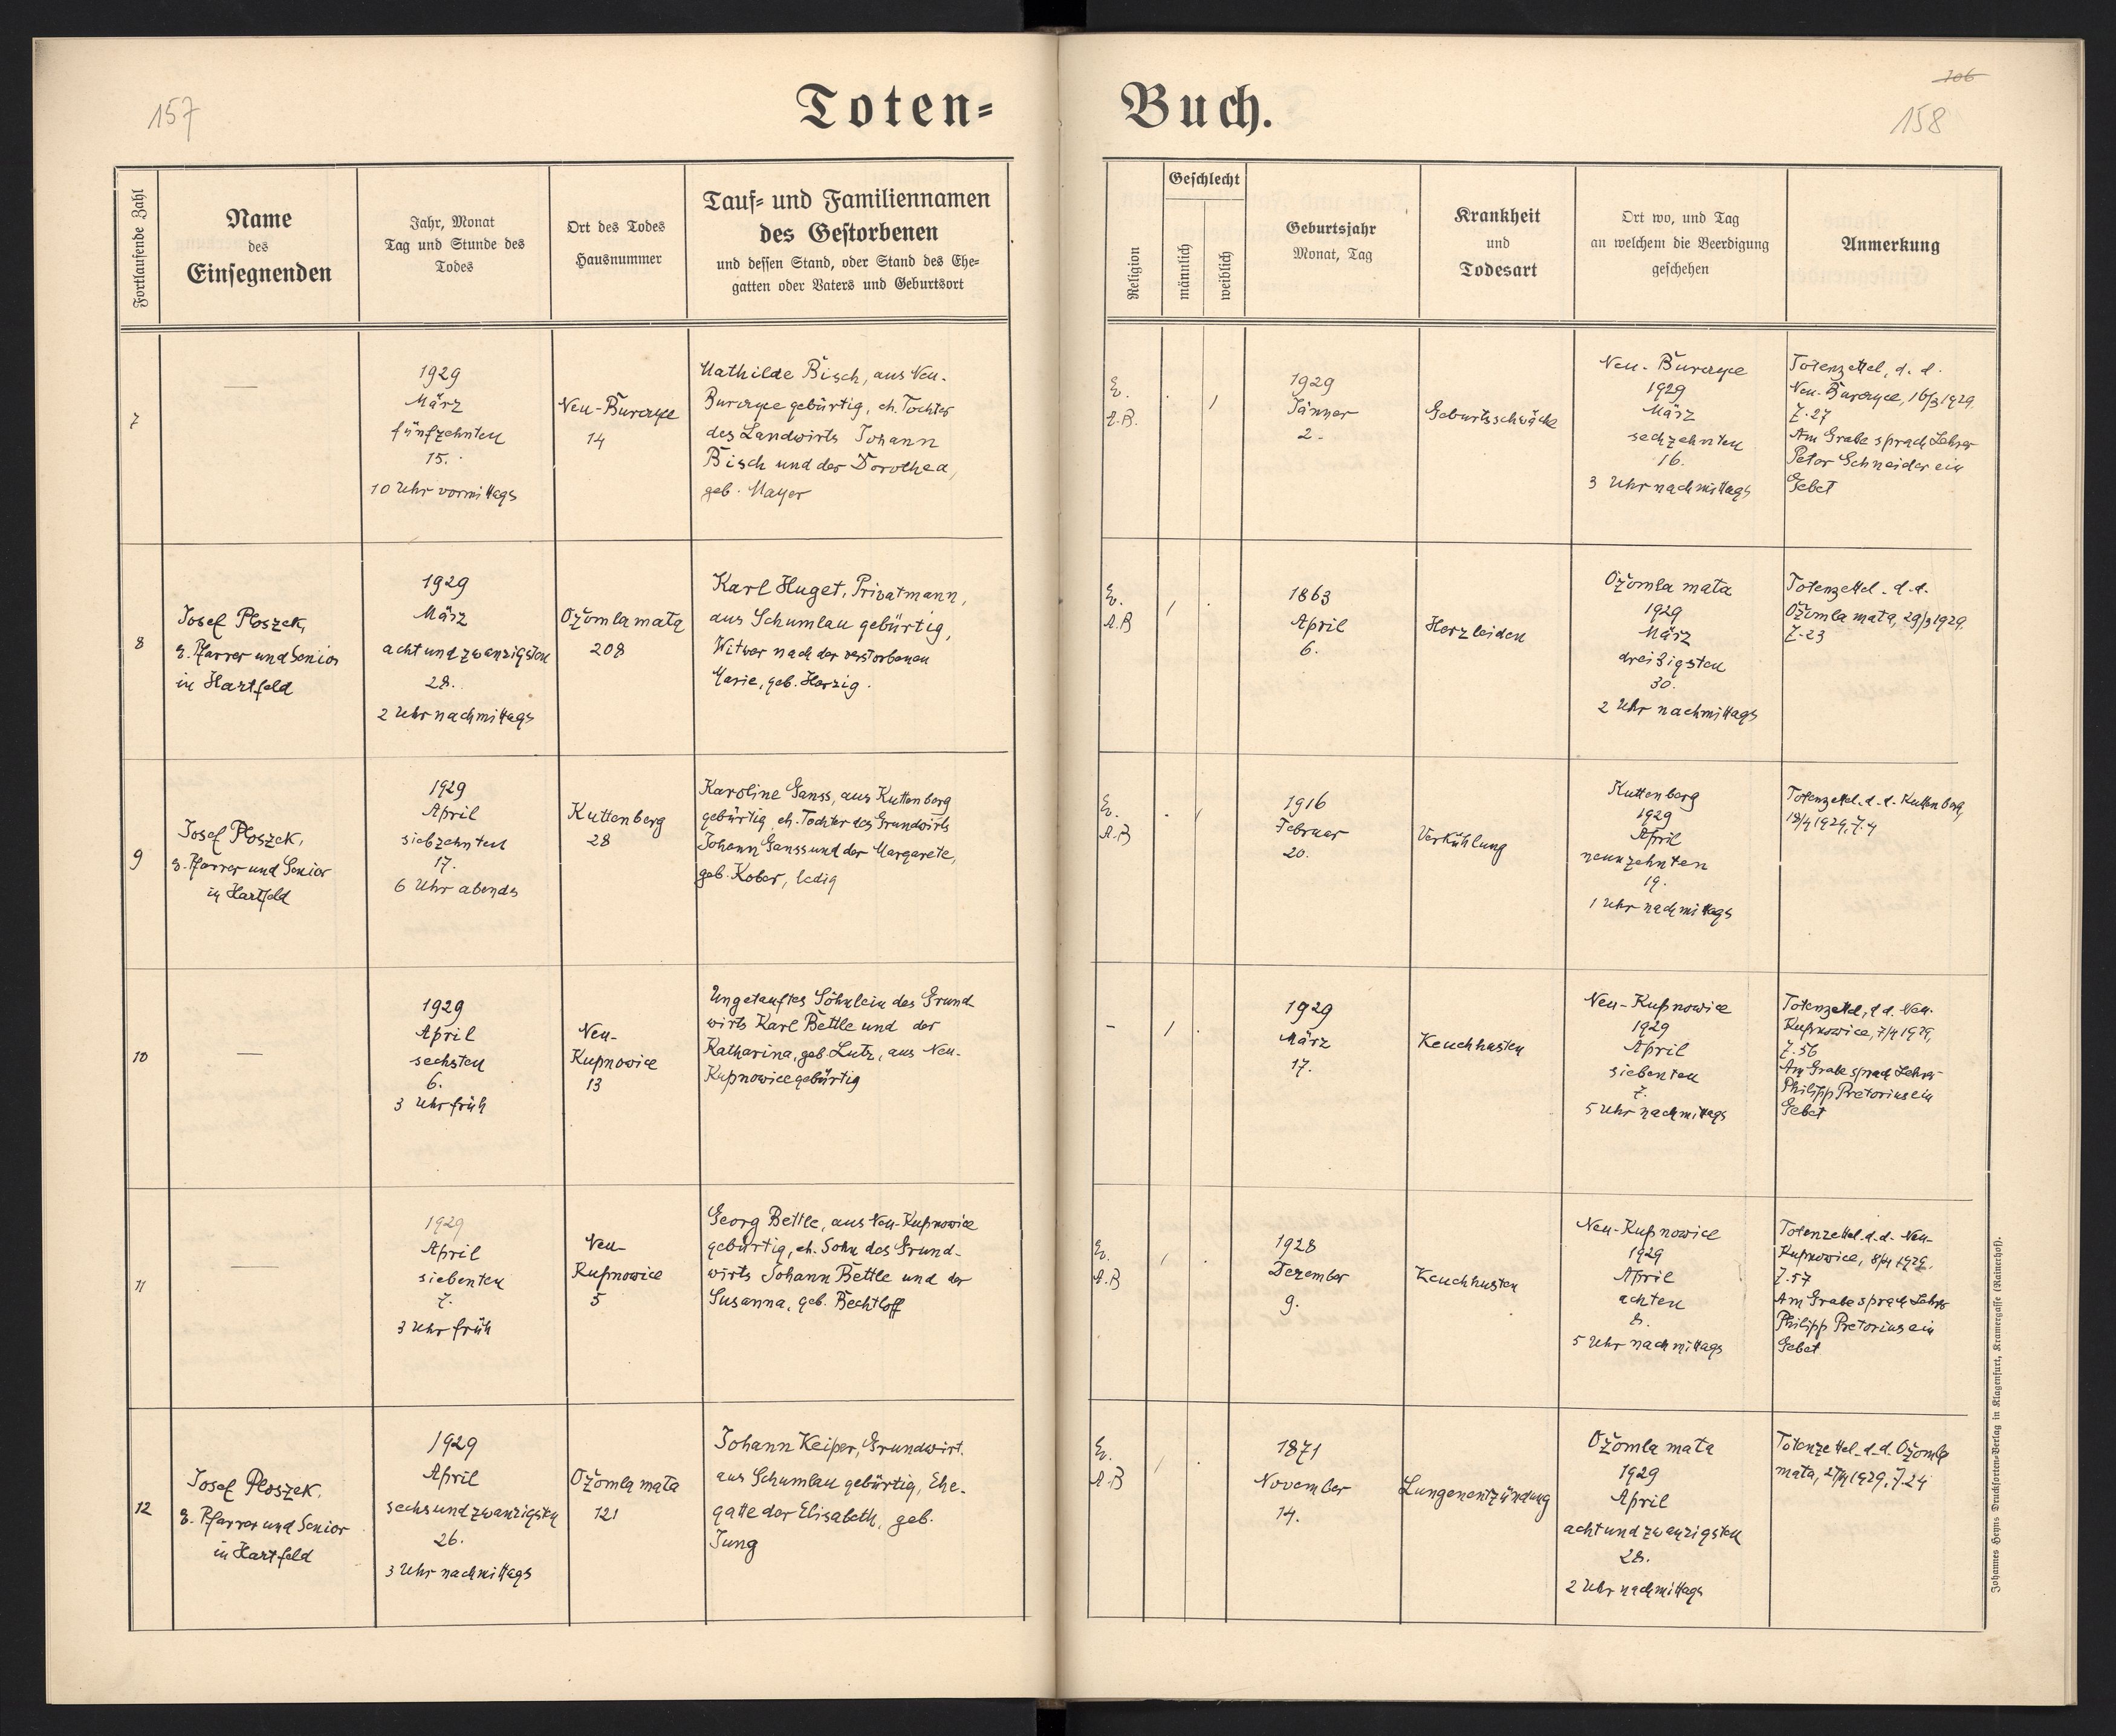 157
Toten=
Buch.
106
158
Fortlaufende Zahl
Name
des
Einsegnenden
Jahr, Monat
Tag und Stunde des
Todes
Ort des Todes
Hausnummer
Tauf= und Familiennamen
des Gestorbenen
und dessen Stand, oder Stand des Ehe=
gatten oder Vaters und Geburtsort
Religion
Geschlecht
männlich
weiblich
Geburtsjahr
Monat, Tag
Krankheit
und
Todesart
Ort wo, und Tag
an welchem die Beerdigung
geschehen
Anmerkung
7
—
1929
März
fünfzehnten
15.
10 Uhr vormittags
Neu-Burczyce
14
Mathilde Bisch, aus Neu-
Burczyce gebürtig, eh. Tochter
des Landwirts Johann
Bisch und der Dorothea,
geb. Mayer
Ev.
A.B.
. /
1929
Jänner
2.
Geburtsschwäche
Neu-Burczyce
1929
März
sechzehnten
16.
3 Uhr nachmittags
Totenzettel, d. d.
Neu-Burczyce, 16/3 1929,
Z. 27
Am Grabe sprach Lehrer
Peter Schneider ein
Gebet
8
Josef Ploszek,
e. Pfarrer und Senior
in Hartfeld
1929
März
achtundzwanzigsten
28.
2 Uhr nachmittags
Ożomla mała
208
Karl Huget, Privatmann,
aus Schumlau gebürtig,
Witwer nach der verstorbenen
Marie, geb. Herzig.
Ev.
A.B
/ .
1863
April
6.
Herzleiden
Ożomla mała
1929
März
dreißigsten
30.
2 Uhr nachmittags
Totenzettel. d. d.
Ożomla mała, 29/3 1929.
Z. 23
9
Josef Ploszek,
e. Pfarrer und Senior
in Hartfeld
1929
April
siebzehnten
17.
6 Uhr abends
Kuttenberg
28
Karoline Ganss, aus Kuttenberg
gebürtig, eh. Tochter des Grundwirts
Johann Ganss und der Margarete,
geb. Kober, ledig
Ev.
A.B
. /
1916
Februar
20.
Verkühlung
Kuttenberg
1929
April
neunzehnten
19.
1 Uhr nachmittags
Totenzettel. d. d. Kuttenberg,
18/4 1929, Z. 4
10
—
1929
April
sechsten
6.
3 Uhr früh
Neu-
Kupnowice
13
Ungetauftes Söhnlein des Grund
wirts Karl Bettle und der
Katharina, geb. Lutz, aus Neu-
Kupnowice gebürtig
–
/ .
1929
März
17.
Keuchhusten
Neu-Kupnowice
1929
April
siebenten
7.
5 Uhr nachmittags
Totenzettel, d d. Neu-
Kupnowice, 7/4 1929,
Z. 56
Am Grabe sprach Lehrer
Philipp Pretorius ein
Gebet
11
—
1929
April
siebenten
7.
3 Uhr früh
Neu-
Kupnowice
5
Georg Bettle, aus Neu-Kupnowice
gebürtig, eh. Sohn des Grund-
wirts Johann Bettle und der
Susanna, geb. Bechtloff
Ev.
A.B
/ .
1928
Dezember
9.
Keuchhusten
Neu-Kupnowice
1929
April
achten
8.
5 Uhr nachmittags
Totenzettel. d. d. Neu-
Kupnowice, 8/4 1929.
Z. 57
Am Grabe sprach Lehrer
Philipp Pretorius ein
Gebet
12
Josef Ploszek.
e. Pfarrer und Senior
in Hartfeld
1929
April
sechsundzwanzigsten
26.
3 Uhr nachmittags
Ożomla mała
121
Johann Keiper, Grundwirt.
aus Schumlau gebürtig, Ehe-
gatte der Elisabeth, geb.
Jung
Ev.
A.B
/ .
1871
November
14.
Lungenentzündung
Ożomla mała
1929
April
achtundzwanzigsten
28.
2 Uhr nachmittags
Totenzettel. d. d. Ożomla
mała, 27/4 1929, Z. 24
Johannes Heyns Drucksorten=Verlag in Klagenfurt, Kramergasse (Rainerhof).